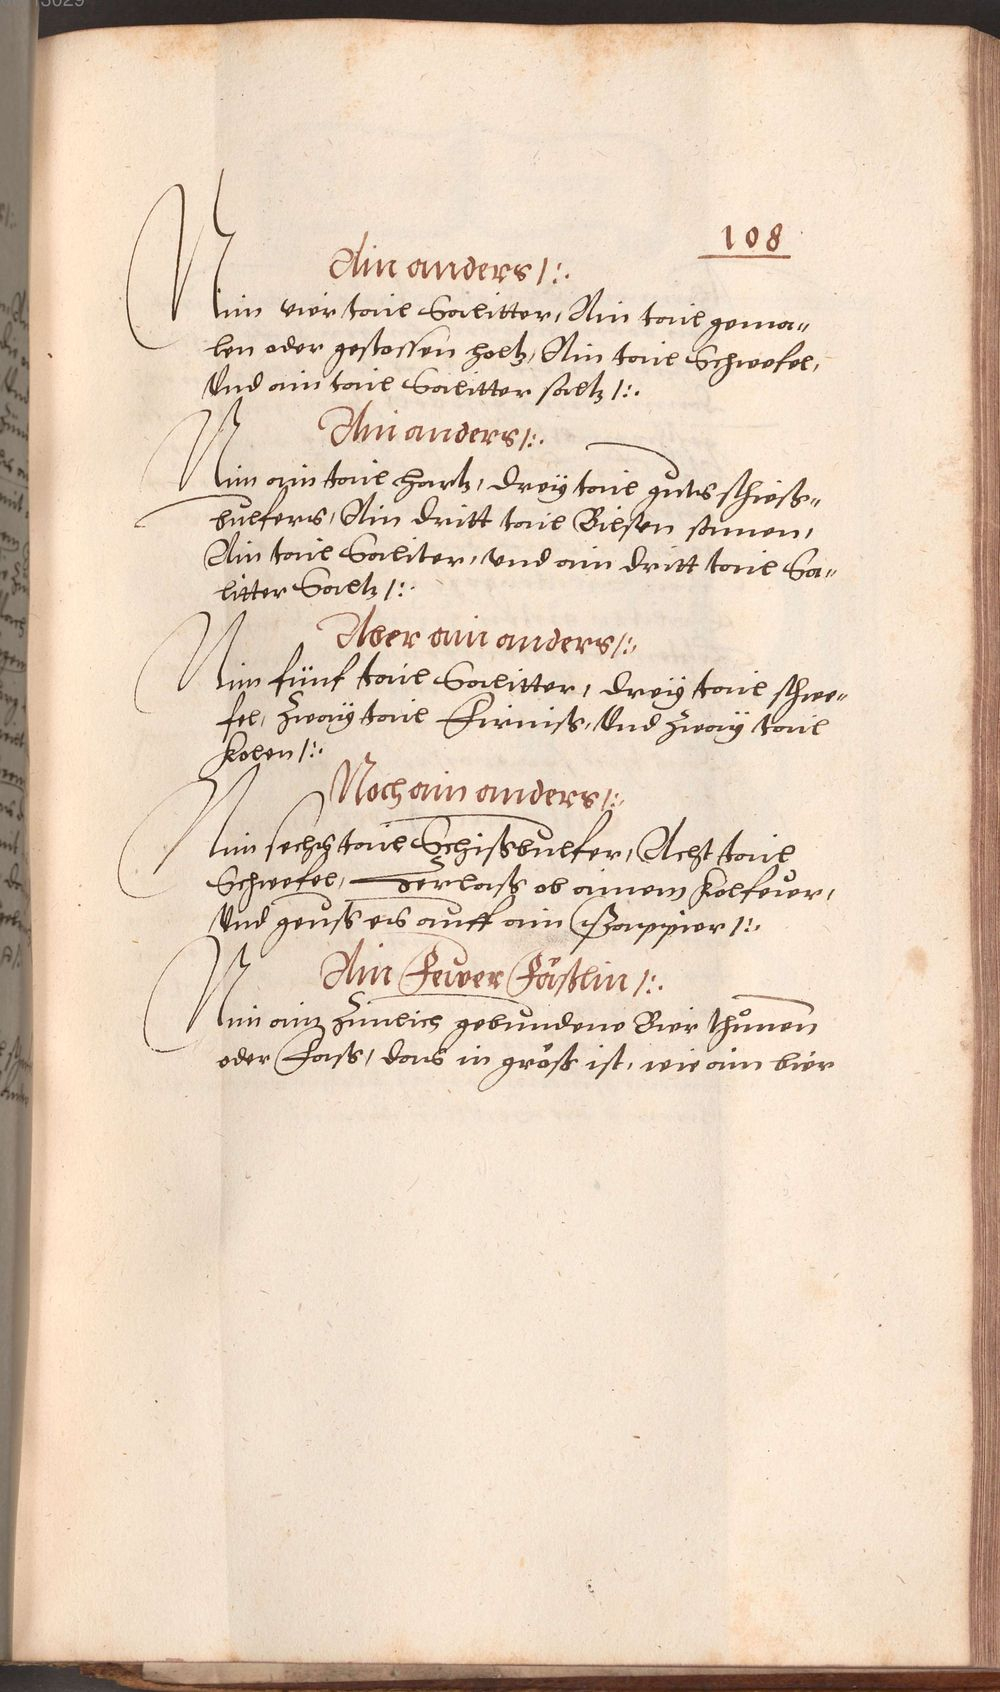 108
Ain anders /:.
Nim vier tail Salitter, Ain tail gema=
len oder gestossen holtz, Ain tail Schwefel,
Vnd ain tail Salitter saltz /:.
Ain anders /:.
Nim ain tail hartz, drey tail guts schieß=
bulfers, Ain dritt tail Bilsen samen,
Ain tail Saliter, vnd ain dritt tail Sa=
litter Saltz /:.
Aber ain anders /:.
Nim fünf tail Salitter, drey tail schwe=
fel, Zway tail Firniß, Vnd Zway tail
Kolen /:.
Noch ain anders /:.
Nim sechs tail Schißbulfer, Acht tail
Schwefel, Zerlaß ob ainem Kolfeuer,
Vnd geuß es auff ain Pappier /:.
Ain Fewer Fäßlin /:.
Nim ain Zimlich gebundene Bier thünen
oder Fass, das in größ ist, wie ain bier